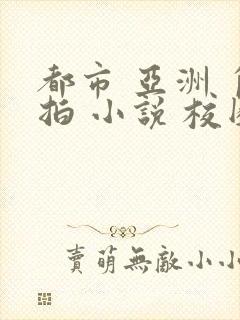 都市 亞洲
拍 小說 校
賣萌無敵小小